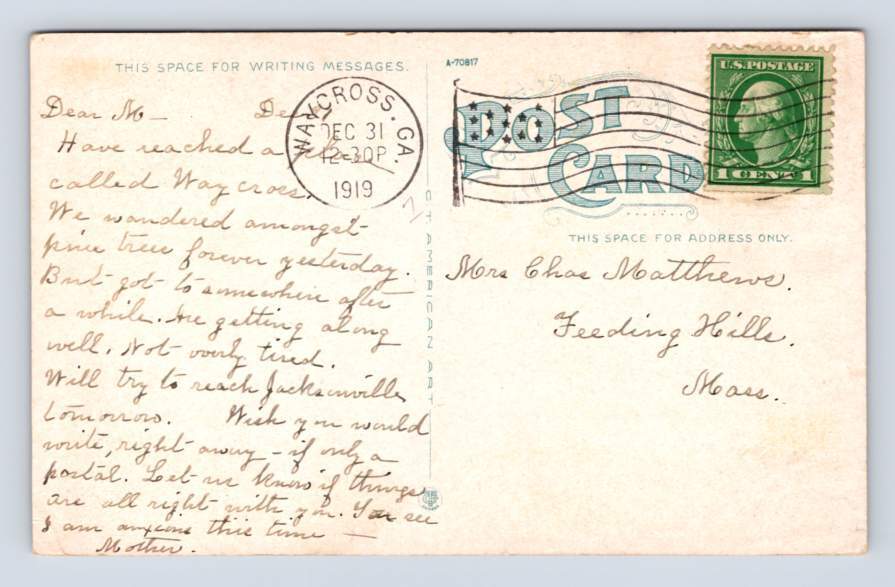 THIS SPACE FOR WRITING MESSAGES.
Dear M— Dec
Have reached a place
called Waycross.
We wandered amongst
pine trees forever yesterday.
But got to somewhere after
a while. Are getting along
well. Not overly tired.
Will try to reach Jacksonville
tomorrow. Wish you would
write, right away – if only a
postal. Let us know if things
are all right with you. You see
I am anxious this time —
Mother.
C T AMERICAN ART
A-70817
POST CARD
WAYCROSS, GA.
DEC 31
12-30P
1919
U.S. POSTAGE
1 CENT 1
THIS SPACE FOR ADDRESS ONLY.
Mrs Chas Matthews.
Feeding Hills.
Mass.